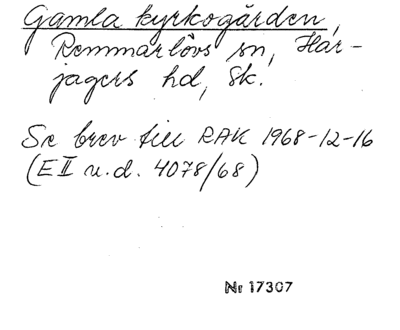 Gamla kyrkogården,
Remmarlövs sn, Har-
jagers hd, Sk.
Se brev till RAK 1968-12-16
(E II u.d. 4078/68)
Nr 17307